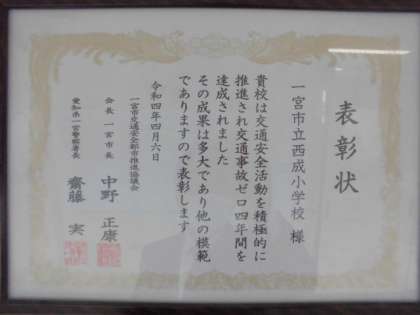 表彰状
一宮市立西成小学校 様
貴校は交通安全活動を積極的に
推進され交通事故ゼロ四年間を
達成されました
その成果は多大であり他の模範
でありますので表彰します
令和四年四月六日
一宮市交通安全都市推進協議会
会長 一宮市長 中野 正康
愛知県一宮警察署長 齋藤 実